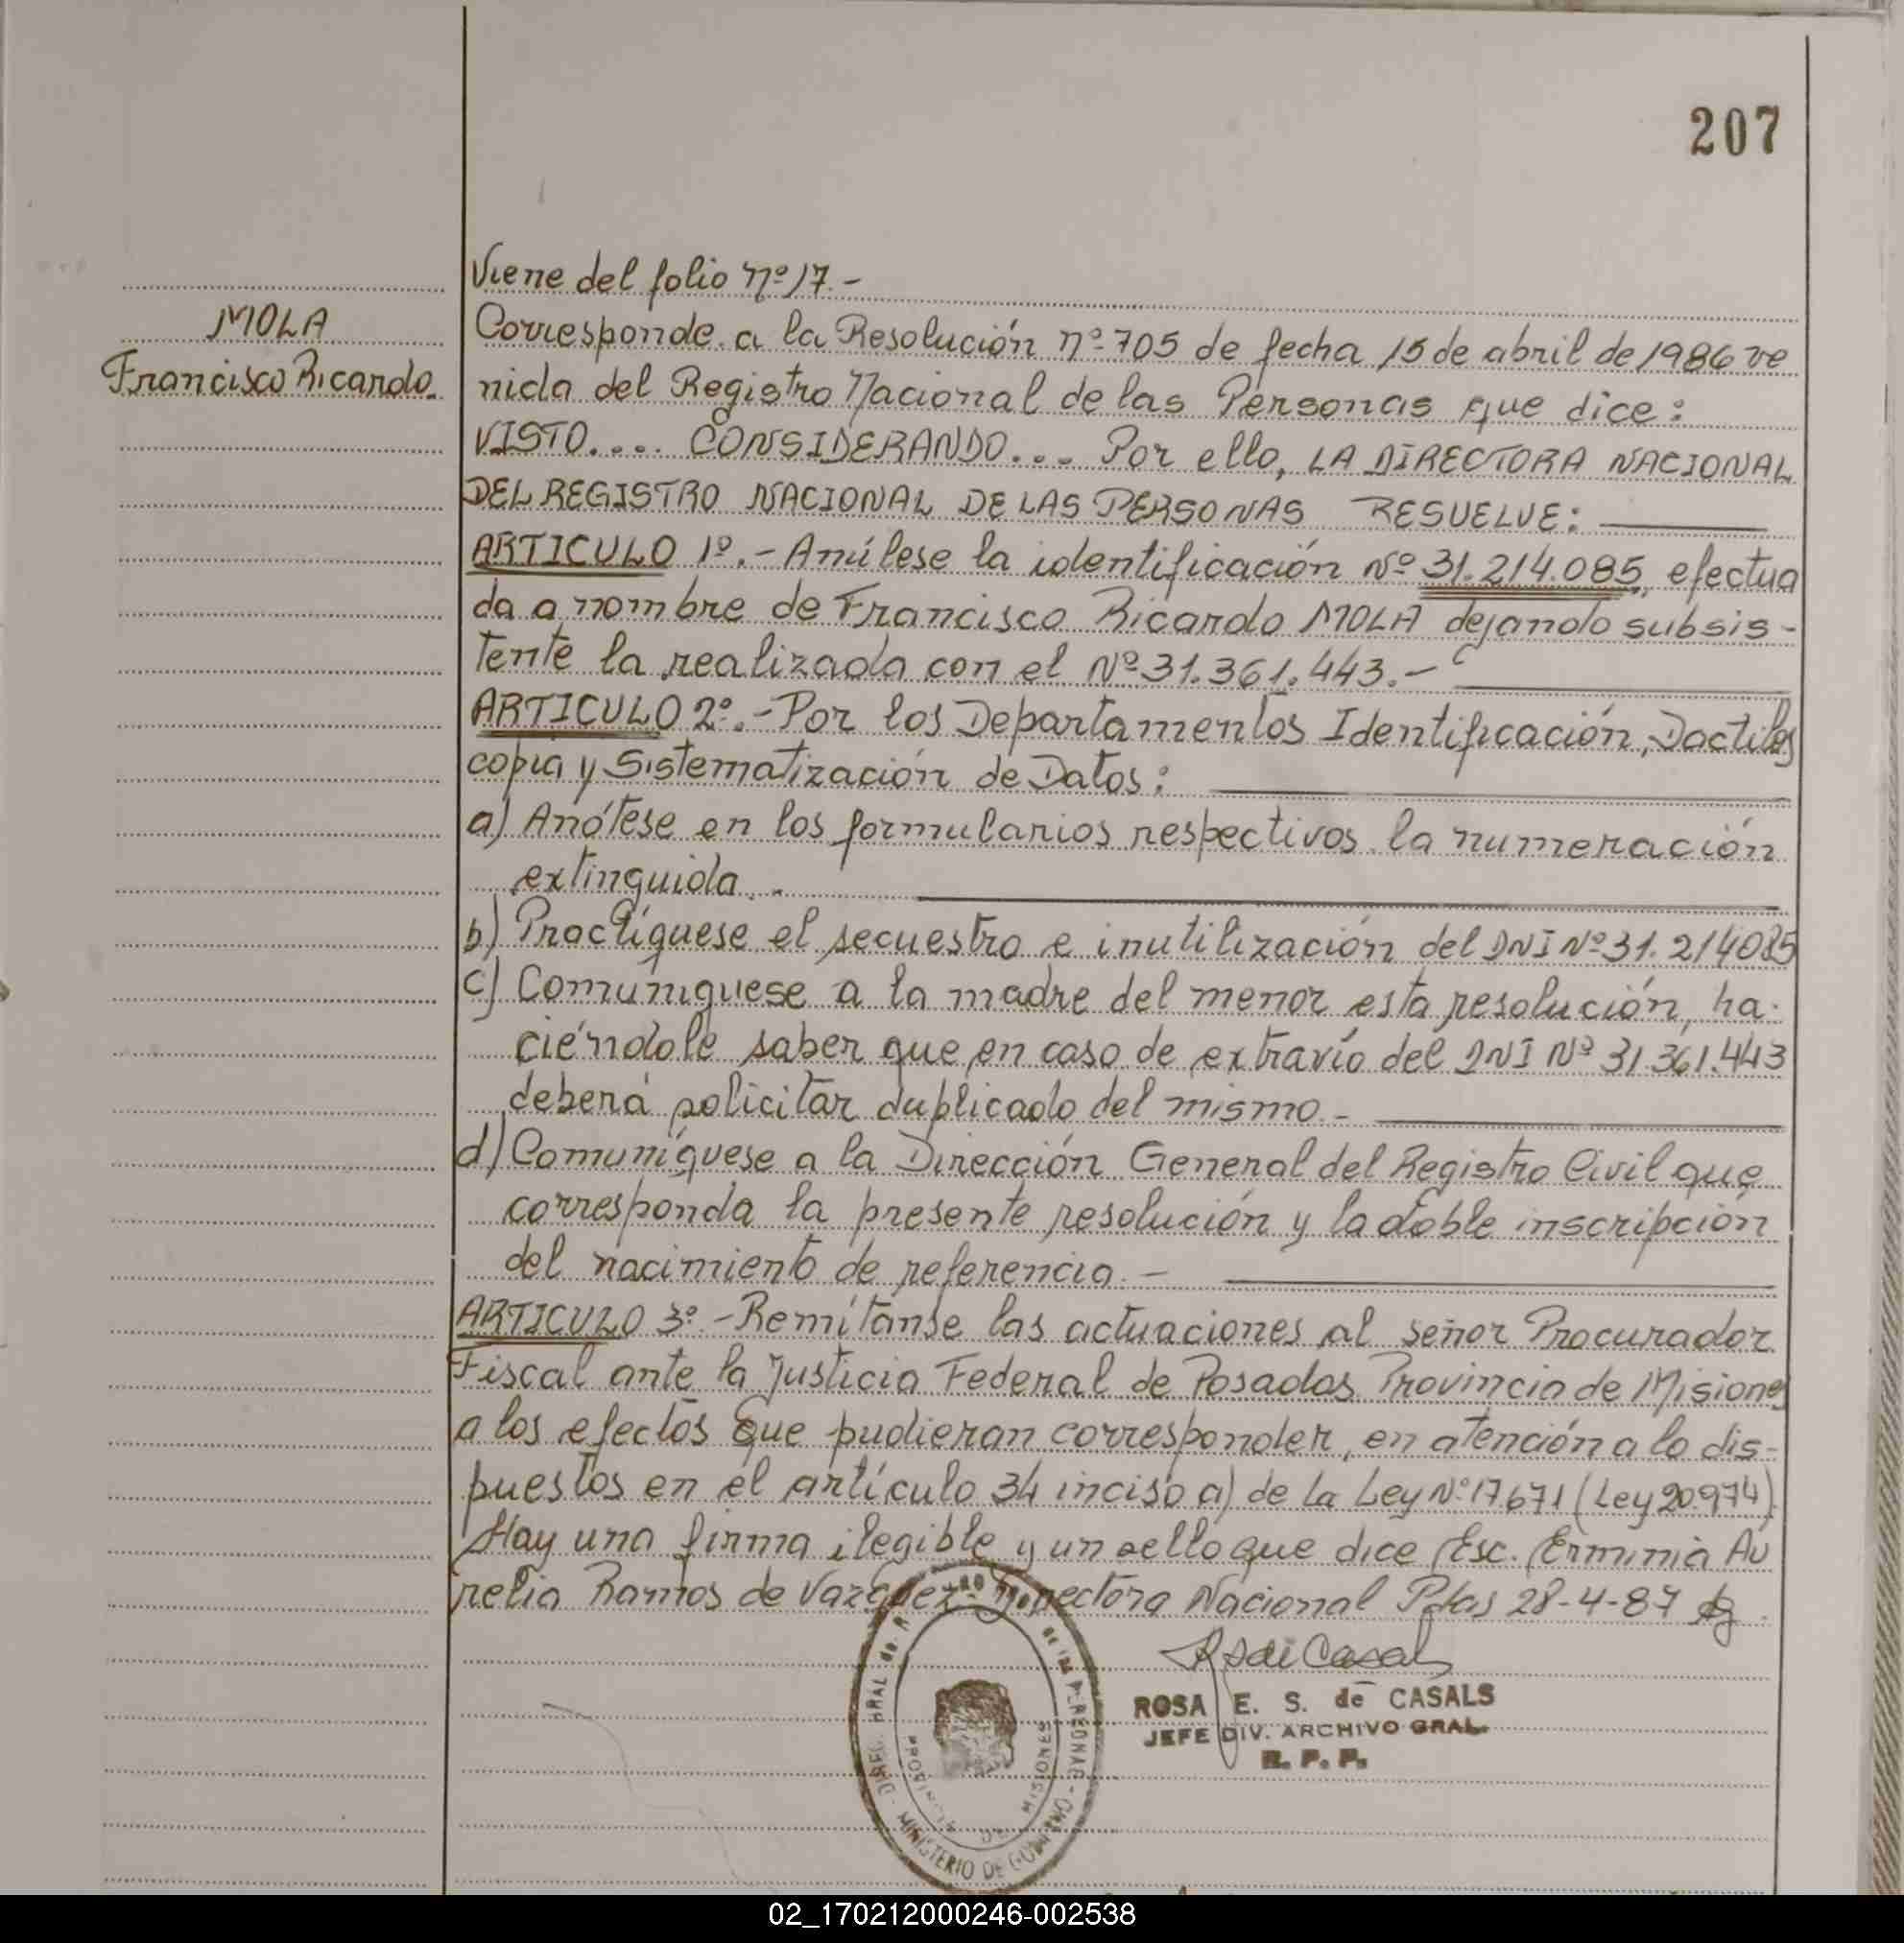 207
Viene del folio nº 17.-
MOLA
Francisco Ricardo.
Corresponde a la Resolución nº 705 de fecha 15 de abril de 1986 ve
nida del Registro Nacional de las Personas que dice:
VISTO.... CONSIDERANDO.... Por ello, LA DIRECTORA NACIONAL
DEL REGISTRO NACIONAL DE LAS PERSONAS RESUELVE:
ARTICULO 1º.- Anúlese la identificación Nº 31.214.085, efectua
da a nombre de Francisco Ricardo MOLA dejando subsis-
tente la realizada con el Nº 31.361.443.-
ARTICULO 2º.- Por los Departamentos Identificación, Dactilos
copia y Sistematización de Datos:
a) Anótese en los formularios respectivos la numeración
extinguida.-
b) Practíquese el secuestro e inutilización del DNI Nº 31.214085
c) Comuníquese a la madre del menor esta resolución, ha-
ciéndole saber que en caso de extravío del DNI Nº 31.361.443
deberá solicitar duplicado del mismo.-
d) Comuníquese a la Dirección General del Registro Civil que
corresponda la presente resolución y la doble inscripción
del nacimiento de referencia.-
ARTICULO 3º.- Remítanse las actuaciones al señor Procurador
Fiscal ante la Justicia Federal de Posadas Provincia de Misiones
a los efectos que pudieran corresponder, en atención a lo dis-
puestos en el artículo 34 inciso a) de la Ley Nº 17.671 (Ley 20.974).
Hay una firma ilegible y un sello que dice Esc. Erminia Au
relia Ramos de Vazquez - Directora Nacional Pdas 28-4-87
ROSA E. S. de CASALS
JEFE DIV. ARCHIVO GRAL.
R. P. P.
DIREC. GRAL de PERSONAS - MINISTERIO DE GOBIERNO
PROVINCIA DE MISIONES
02_170212000246-002538